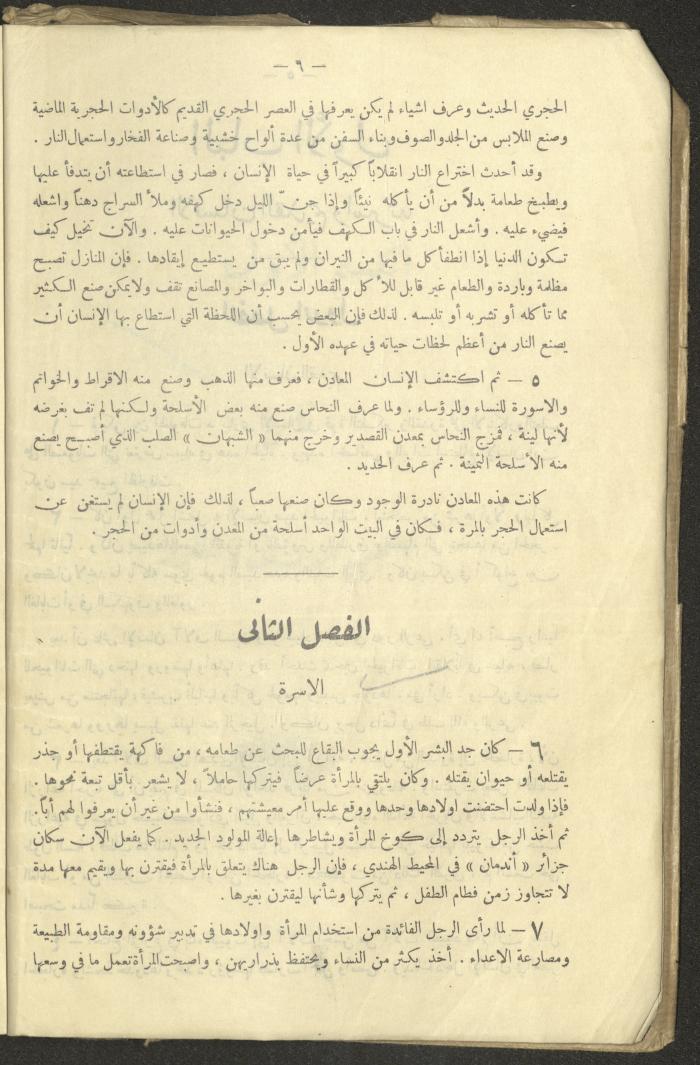 — ٦ —
الحجري الحديث وعرف اشياء لم يكن يعرفها في العصر الحجري القديم كالأدوات الحجرية الماضية
وصنع الملابس من الجلد والصوف وبناء السفن من عدة ألواح خشبية وصناعة الفخار واستعمال النار .
وقد أحدث اختراع النار انقلاباً كبيراً في حياة الإنسان ، فصار في استطاعته أن يتدفأ عليها
ويطبخ طعامة بدلاً من أن يأكله نيئاً وإذا جنّ الليل دخل كهفه وملأ السراج دهناً واشعله
فيضيء عليه . وأشعل النار في باب الكهف فيأمن دخول الحيوانات عليه . والآن تخيل كيف
تكون الدنيا إذا انطفأ كل ما فيها من النيران ولم يبق من يستطيع إيقادها . فإن المنازل تصبح
مظلمة وباردة والطعام غير قابل للأكل والقطارات والبواخر والمصانع تقف ولا يمكن صنع الكثير
مما تأكله أو تشربه أو تلبسه . لذلك فإن البعض يحسب أن اللحظة التي استطاع بها الإنسان أن
يصنع النار من أعظم لحظات حياته في عهده الأول .
٥ — ثم اكتشف الإنسان المعادن ، فعرف منها الذهب وصنع منه الاقراط والخواتم
والاسورة للنساء وللرؤساء . ولما عرف النحاس صنع منه بعض الأسلحة ولكنها لم تف بغرضه
لأنها لينة ، فمزج النحاس بمعدن القصدير وخرج منهما « الشبهان » الصلب الذي أصبح يصنع
منه الأسلحة الثمينة . ثم عرف الحديد .
كانت هذه المعادن نادرة الوجود وكان صنعها صعباً ، لذلك فإن الإنسان لم يستغن عن
استعمال الحجر بالمرة ، فكان في البيت الواحد أسلحة من المعدن وأدوات من الحجر .
الفصل الثاني
الاسرة
٦ — كان جد البشر الأول يجوب البقاع للبحث عن طعامه ، من فاكهة يقتطفها أو جذر
يقتلعه أو حيوان يقتله . وكان يلتقي بالمرأة عرضاً فيتركها حاملاً ، لا يشعر بأقل تبعة نحوها .
فإذا ولدت احتضنت اولادها وحدها ووقع عليها أمر معيشتهم ، فنشأوا من غير أن يعرفوا لهم أباً.
ثم أخذ الرجل يتردد إلى كوخ المرأة ويشاطرها إعالة المولود الجديد . كما يفعل الآن سكان
جزائر « أندمان » في المحيط الهندي ، فإن الرجل هناك يتعلق بالمرأة فيقترن بها ويقيم معها مدة
لا تتجاوز زمن فطام الطفل ، ثم يتركها وشأنها ليقترن بغيرها .
٧ — لما رأى الرجل الفائدة من استخدام المرأة واولادها في تدبير شؤونه ومقاومة الطبيعة
ومصارعة الاعداء . أخذ يكثر من النساء ويحتفظ بذراريهن ، واصبحت المرأة تعمل ما في وسعها